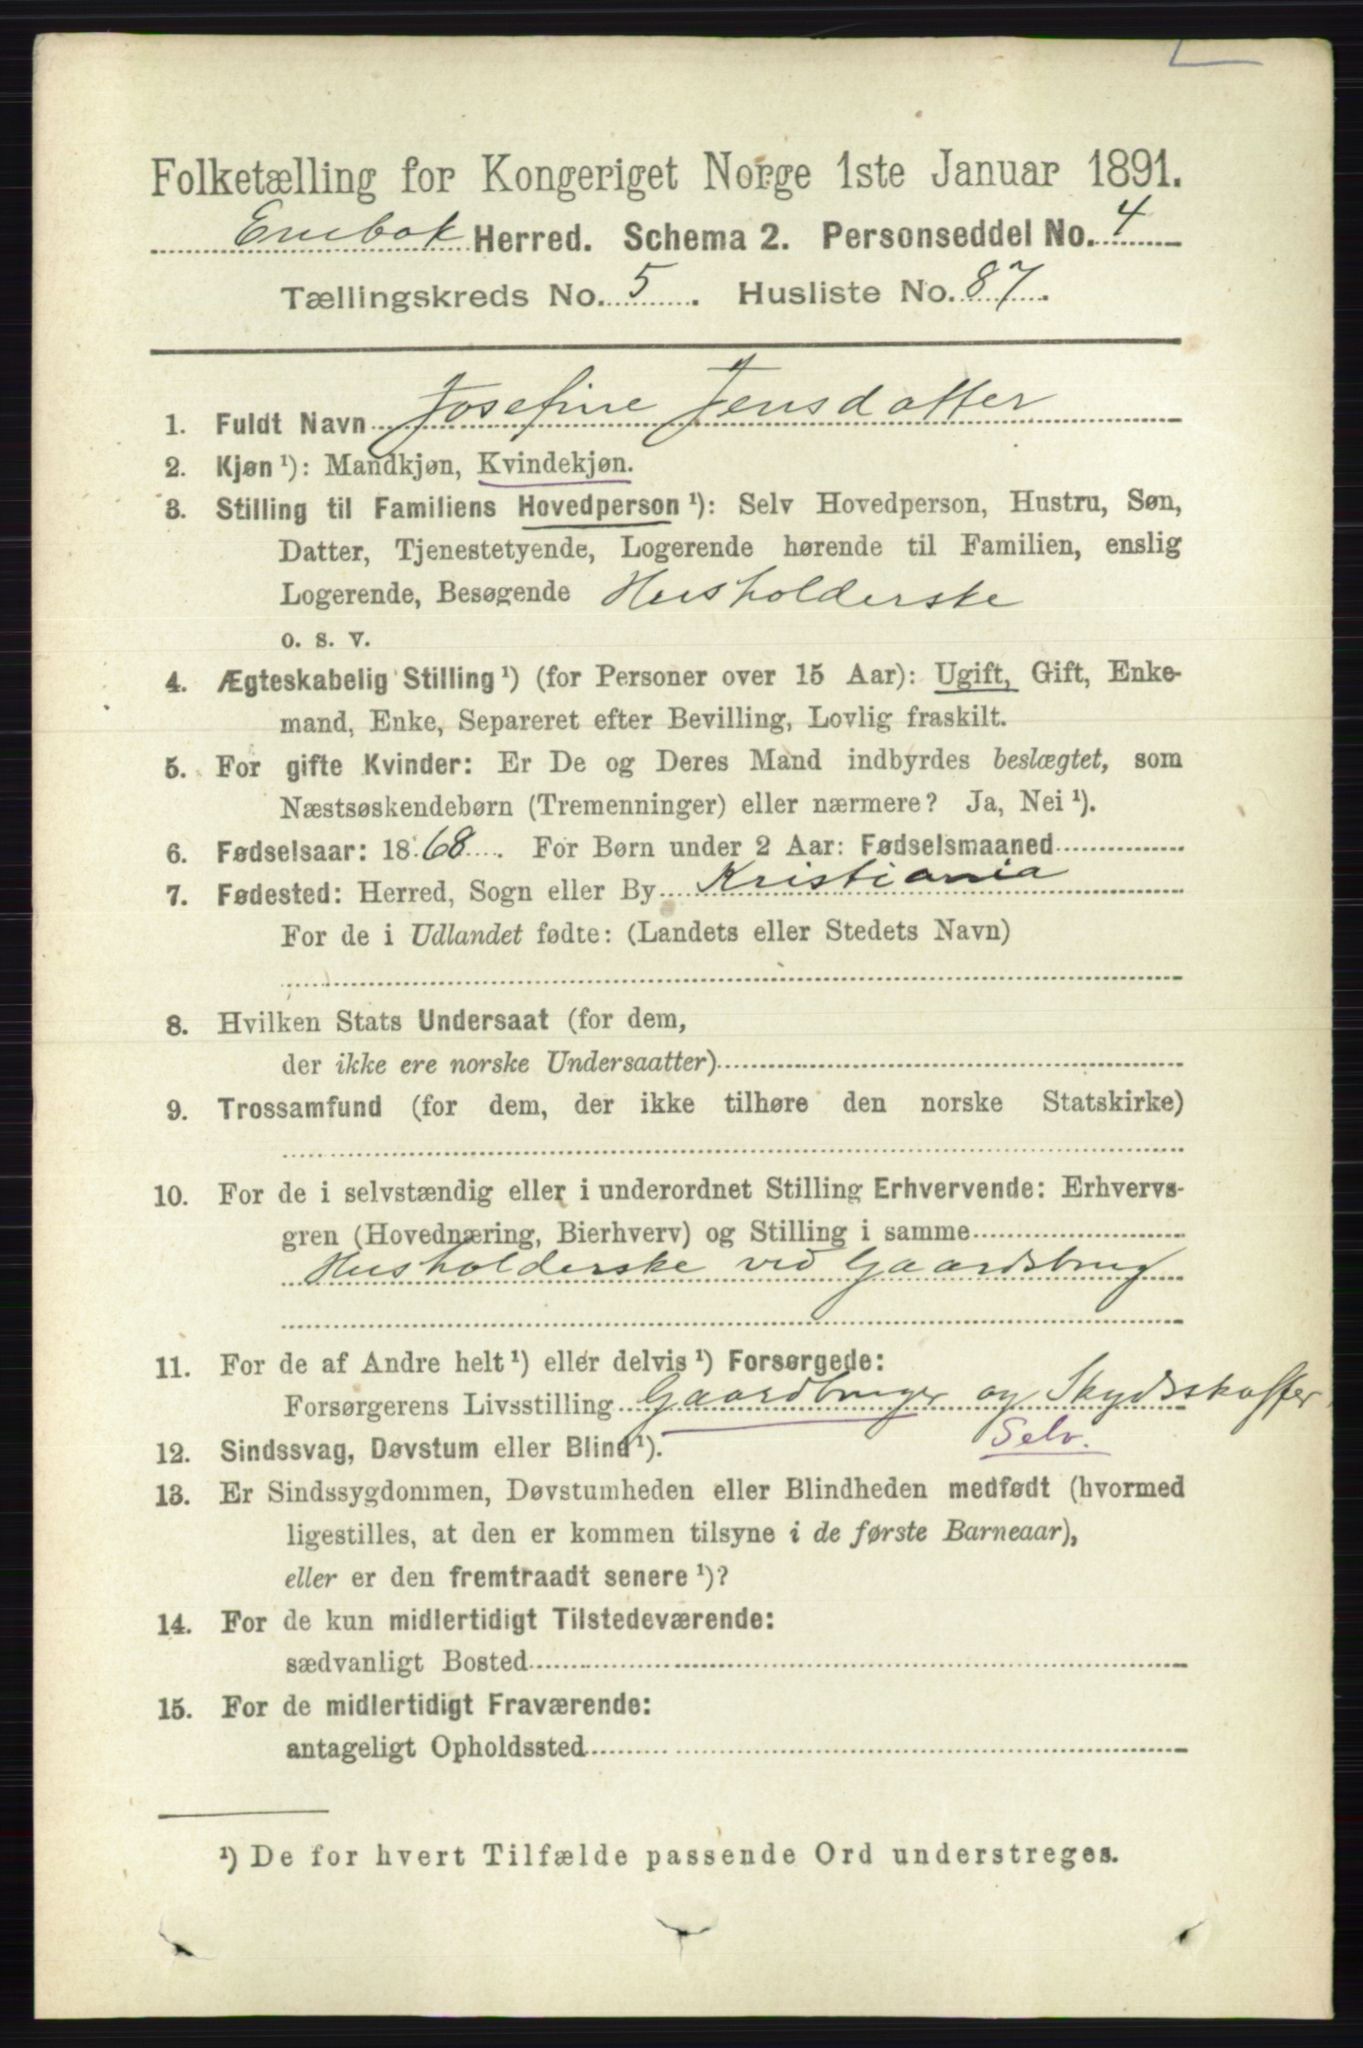 Folketælling for Kongeriget Norge 1ste Januar 1891.
Enebak Herred. Schema 2. Personseddel No. 4
Tællingskreds No. 5. Husliste No. 87.
1. Fuldt Navn Josefine Jensdatter
2. Kjøn ¹): Mandkjøn, Kvindekjøn.
3. Stilling til Familiens Hovedperson ¹): Selv Hovedperson, Hustru, Søn,
Datter, Tjenestetyende, Logerende hørende til Familien, enslig
Logerende, Besøgende Husholderske
o. s. v.
4. Ægteskabelig Stilling ¹) (for Personer over 15 Aar): Ugift, Gift, Enke-
mand, Enke, Separeret efter Bevilling, Lovlig fraskilt.
5. For gifte Kvinder: Er De og Deres Mand indbyrdes beslægtet, som
Næstsøskendebørn (Tremenninger) eller nærmere? Ja, Nei ¹).
6. Fødselsaar: 1868. For Børn under 2 Aar: Fødselsmaaned
7. Fødested: Herred, Sogn eller By Kristiania
For de i Udlandet fødte: (Landets eller Stedets Navn)
8. Hvilken Stats Undersaat (for dem,
der ikke ere norske Undersaatter)
9. Trossamfund (for dem, der ikke tilhøre den norske Statskirke)
10. For de i selvstændig eller i underordnet Stilling Erhvervende: Erhvervs-
gren (Hovednæring, Bierhverv) og Stilling i samme
Husholderske ved Gaardsbrug
11. For de af Andre helt ¹) eller delvis ¹) Forsørgede:
Forsørgerens Livsstilling Gaardbruger og Skydsskaffer,
Selv.
12. Sindssvag, Døvstum eller Blind ¹).
13. Er Sindssygdommen, Døvstumheden eller Blindheden medfødt (hvormed
ligestilles, at den er kommen tilsyne i de første Barneaar),
eller er den fremtraadt senere ¹)?
14. For de kun midlertidigt Tilstedeværende:
sædvanligt Bosted
15. For de midlertidigt Fraværende:
antageligt Opholdssted
¹) De for hvert Tilfælde passende Ord understreges.